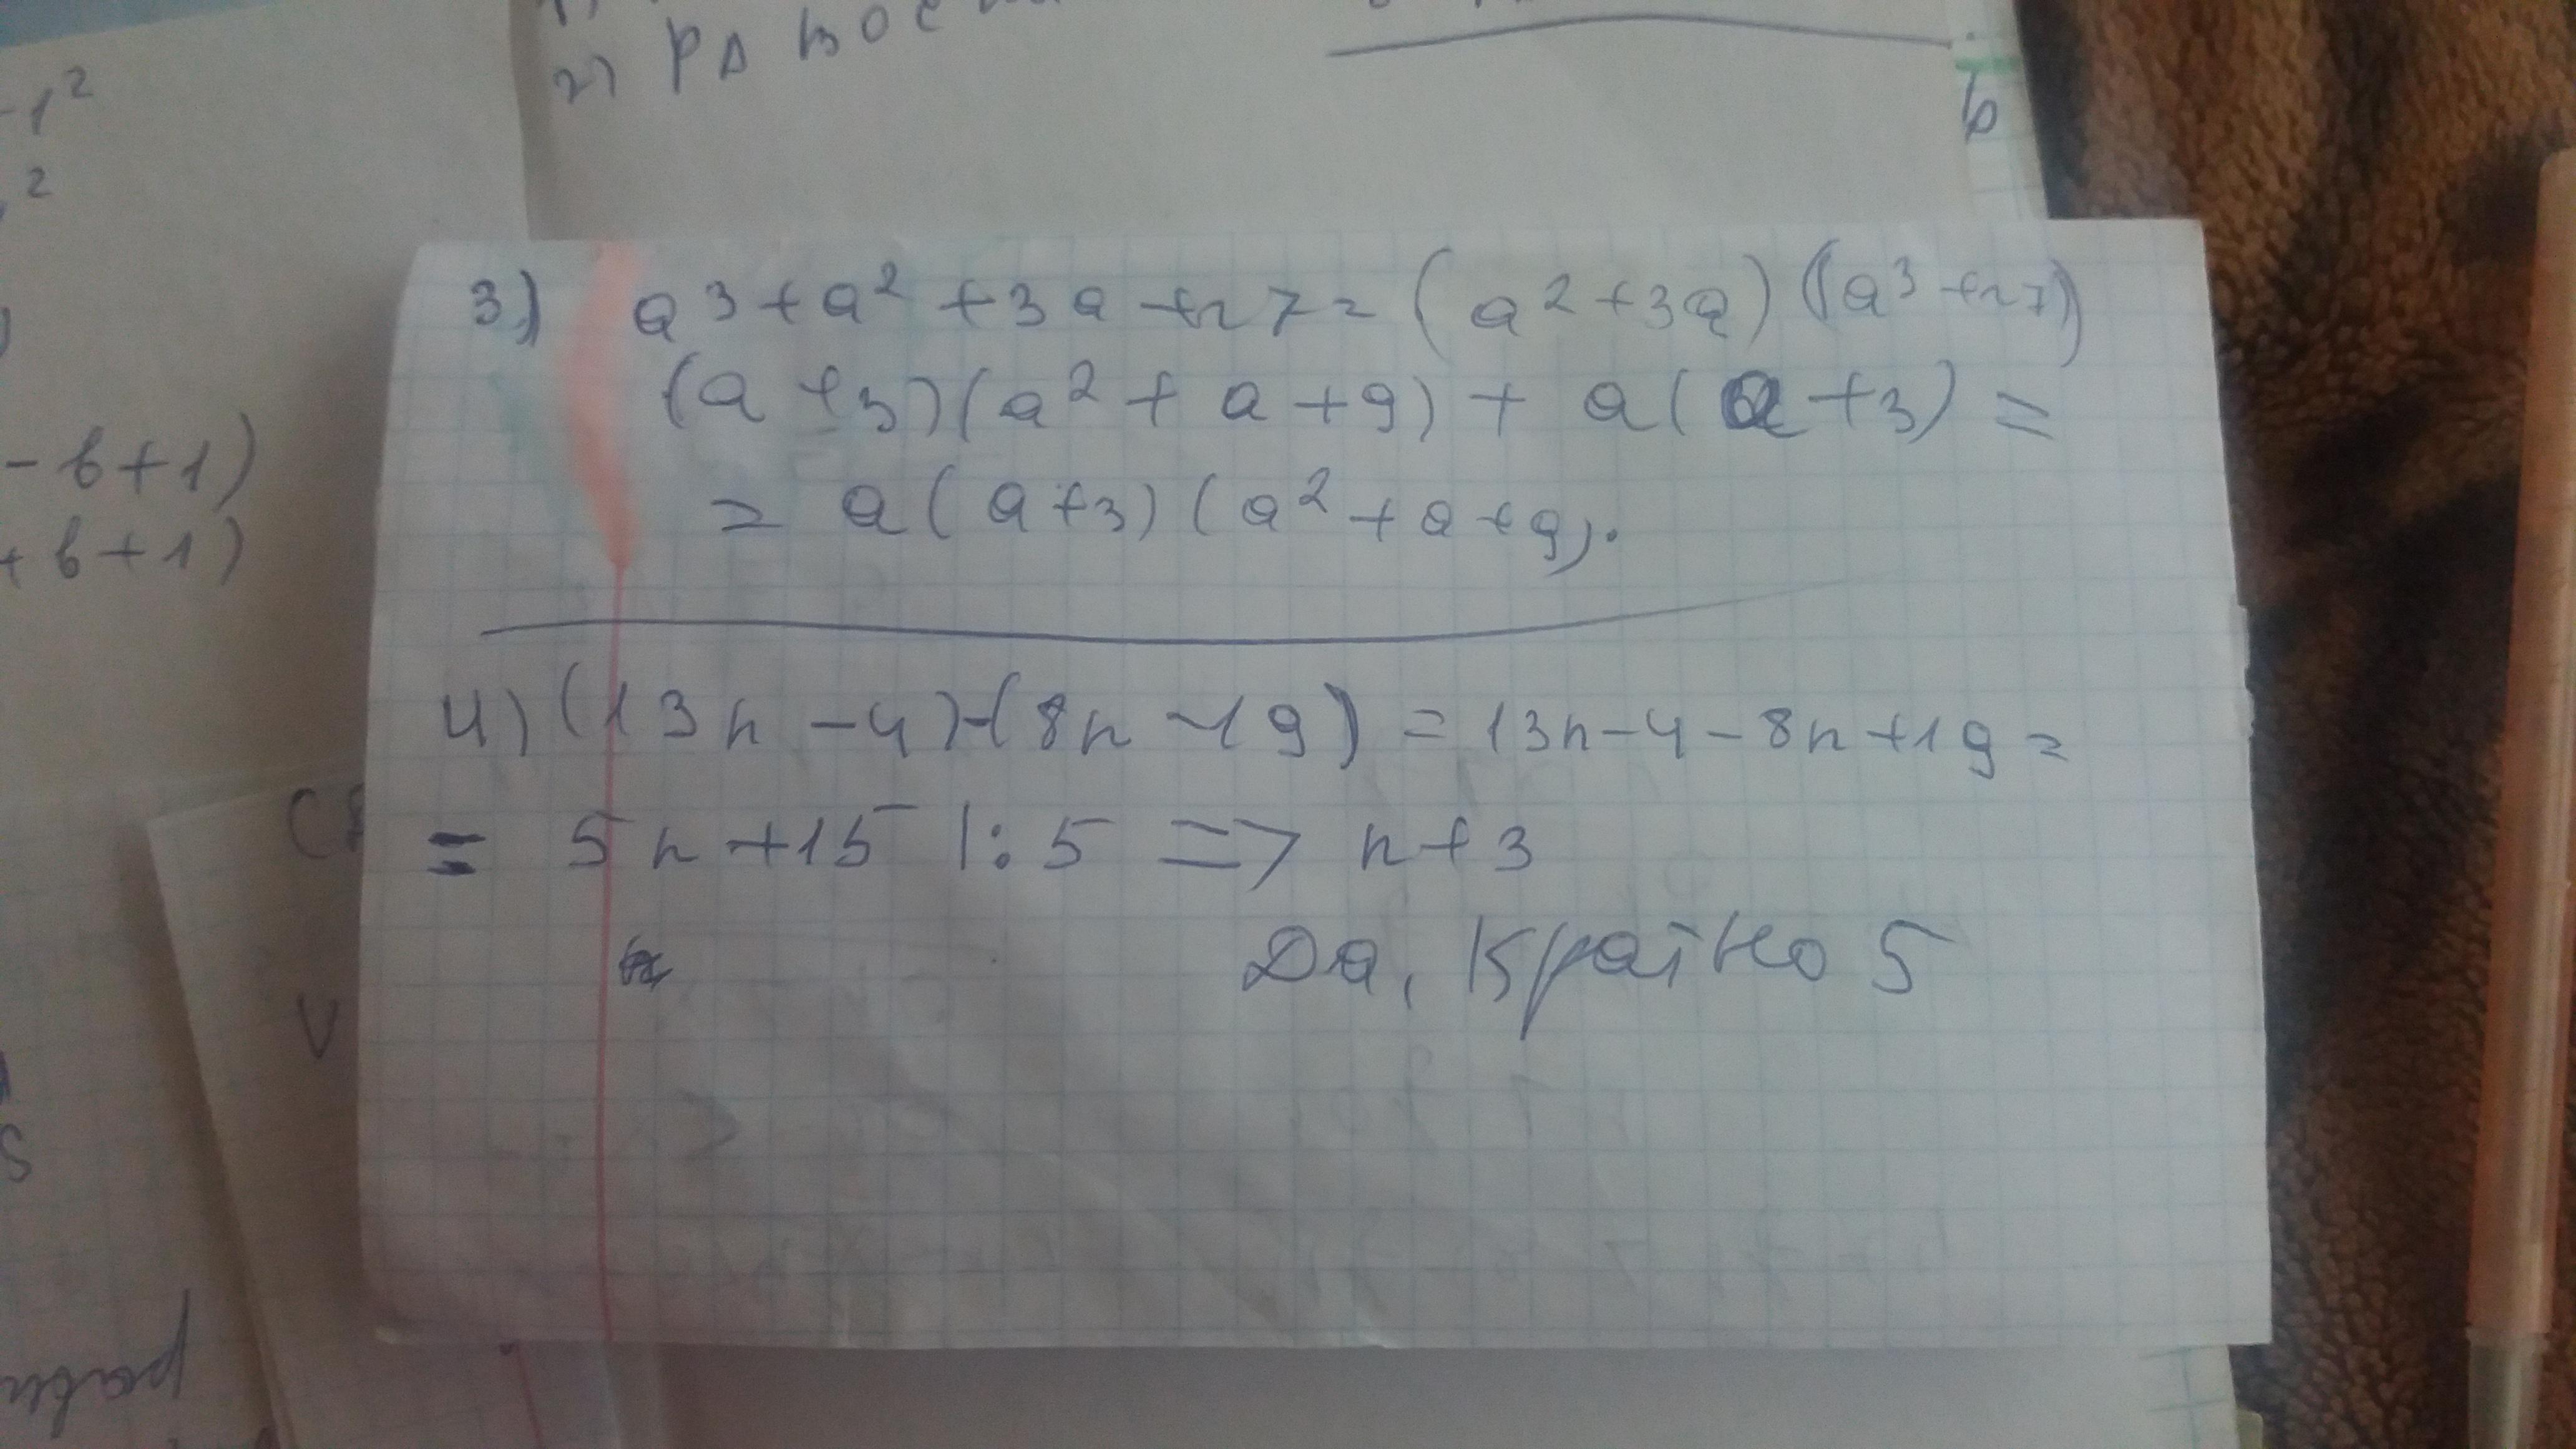 -1²
²
2) РΔ
b
- b+1)
+ b+1)
3) a³+a²+3a+27=(a²+3a)(a³+27)
(a+3)(a²+a+9)+a(a+3)=
=a(a+3)(a²+a+9).
4) (13n-4)-(8n-19)=13n-4-8n+19=
= 5n+15 |:5 => n+3
Да, Кратно 5
V
S